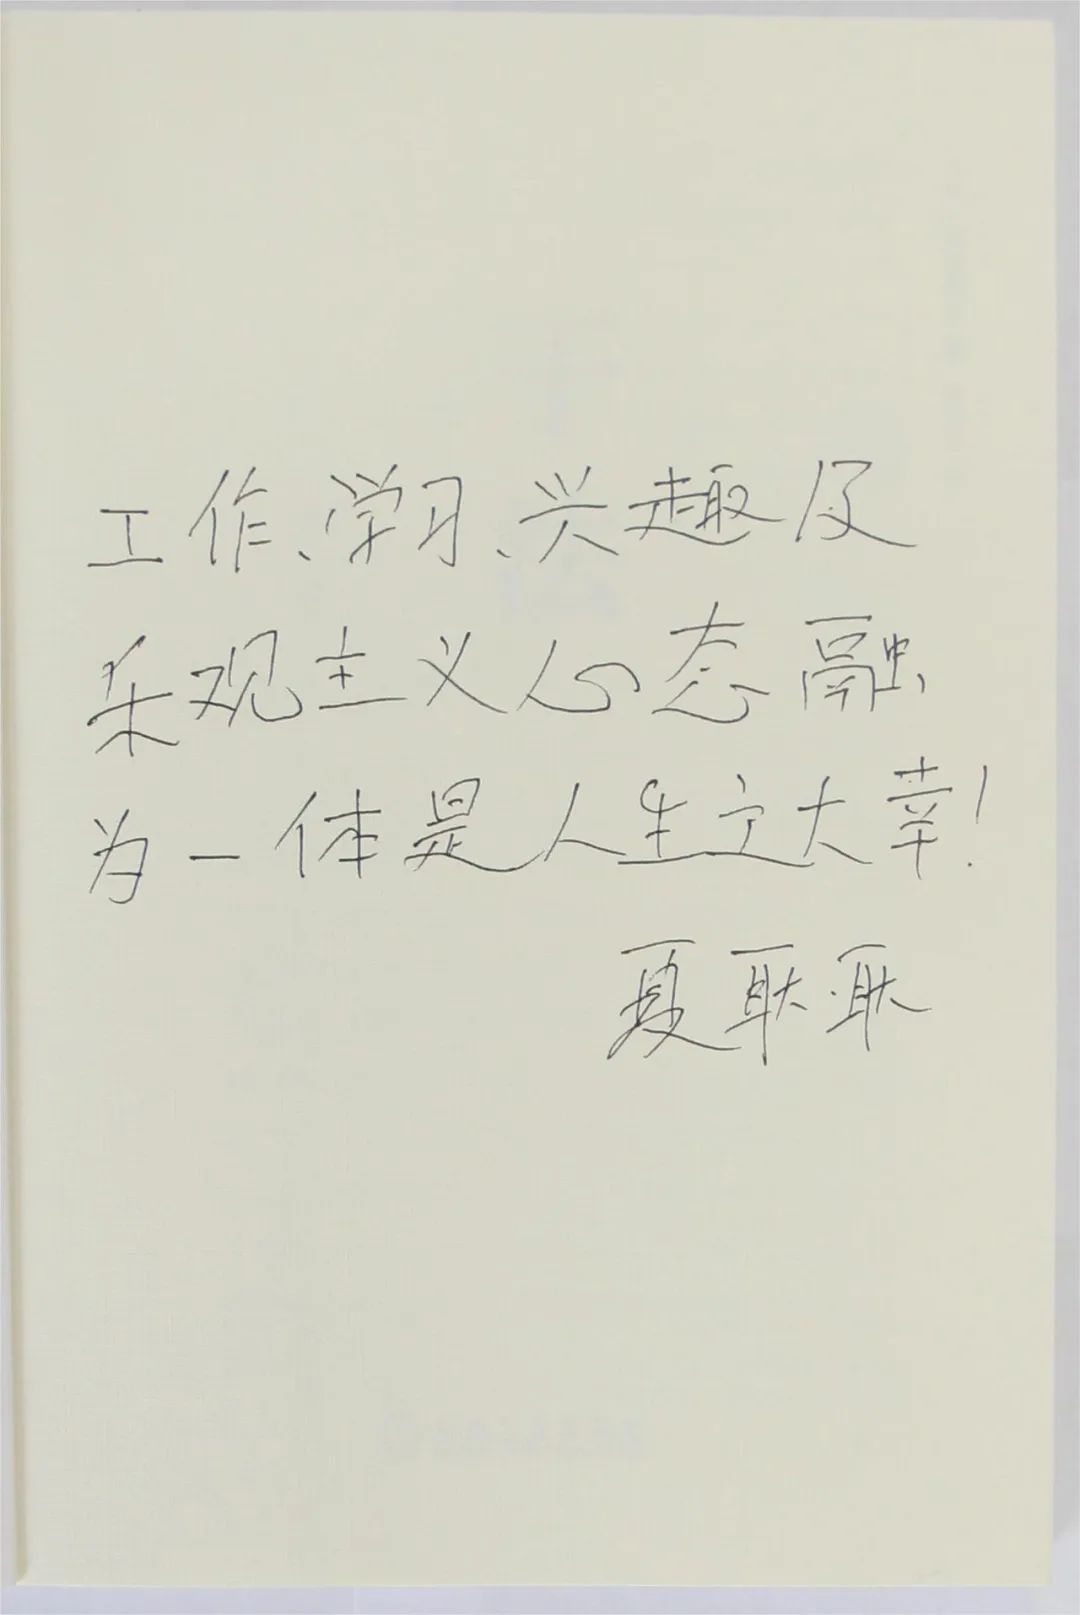 工作、学习、兴趣及
乐观主义心态融
为一体是人生之大幸!
夏耿耿